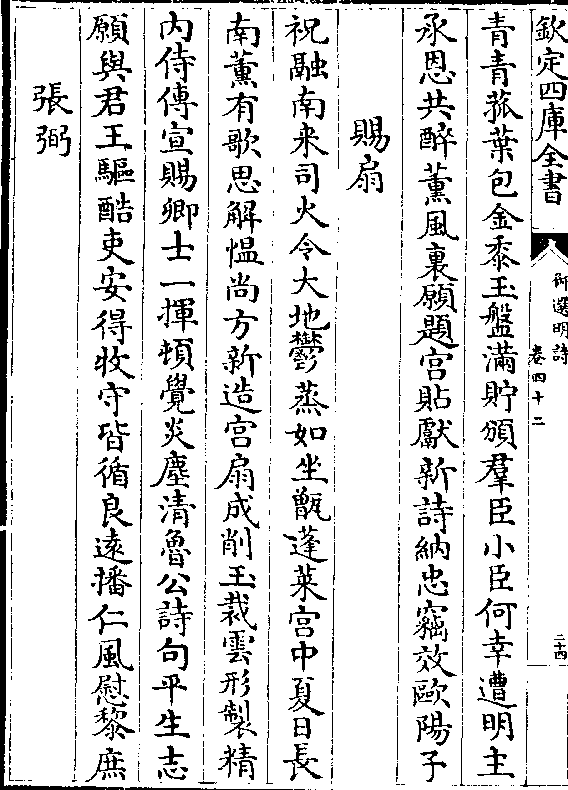 欽定四庫全書
御選明詩
卷四十二
二十四
青青菰葉包金黍玉盤滿貯頒羣臣小臣何幸遭明主
承恩共醉薰風裏願題宫貼獻新詩納忠竊效歐陽子
賜扇
祝融南来司火令大地鬱蒸如坐甑蓬萊宫中夏日長
南薰有歌思解愠尚方新造宫扇成削玉裁雲形製精
内侍傳宣賜卿士一揮頓覺炎塵清魯公詩句平生志
願與君王驅酷吏安得牧守皆循良逺播仁風慰黎庶
張弼